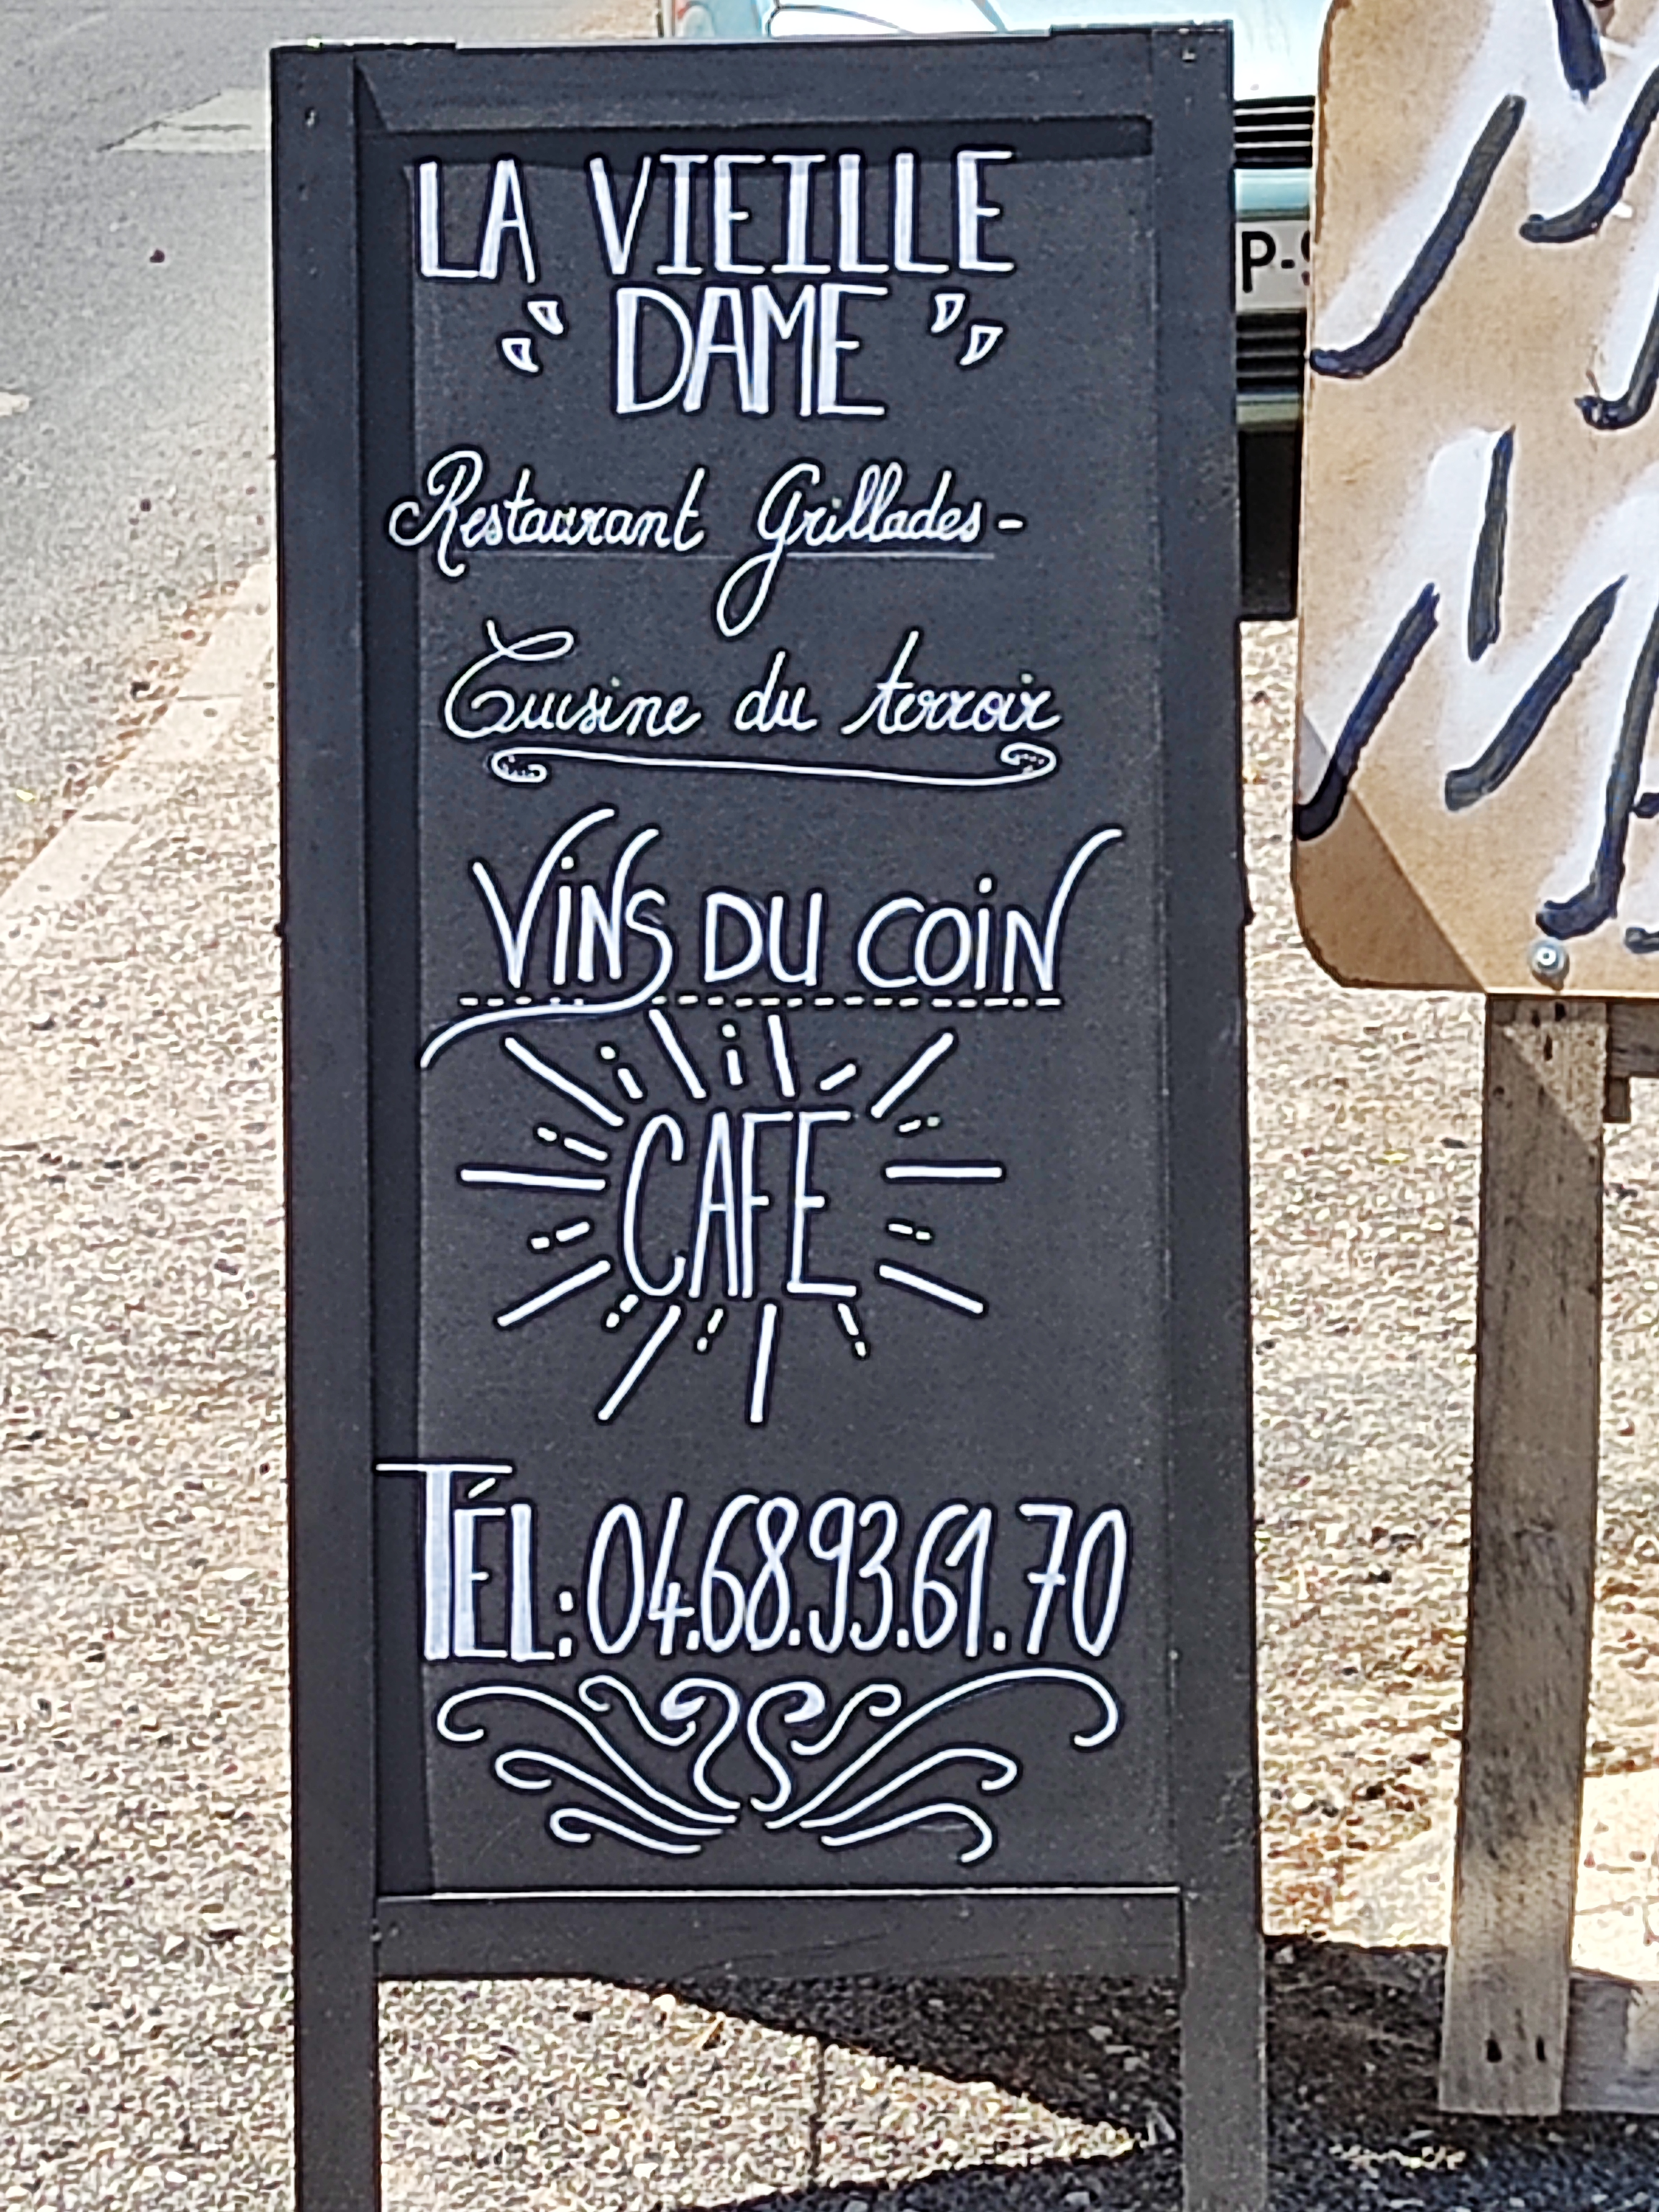 LA VIEILLE
DAME
Restaurant Grillades -
Cuisine du terroir
VINS DU COIN
CAFE
TÉL: 04.68.93.61.70
P-